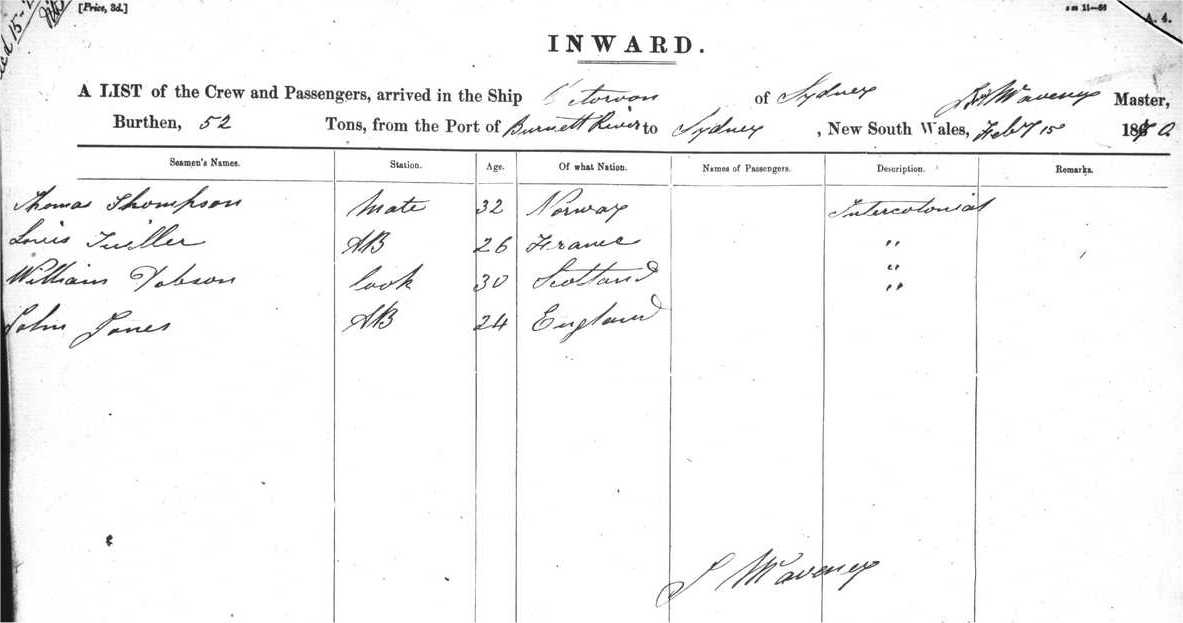 [Price, 3d.]
A. 4.
INWARD.
A LIST of the Crew and Passengers, arrived in the Ship of Sydney Waveney Master,
Burthen, 52 Tons, from the Port of Burnett River to Sydney, New South Wales, Feby 15 1870
Seamen's Names. Station. Age. Of what Nation. Names of Passengers. Description. Remarks.
Thomas Thompson Mate 32 Norway Intercolonial
Louis AB 26 France "
William Dobson Cook 30 Scotland "
"
John Jones AB 24 England
J Waveney